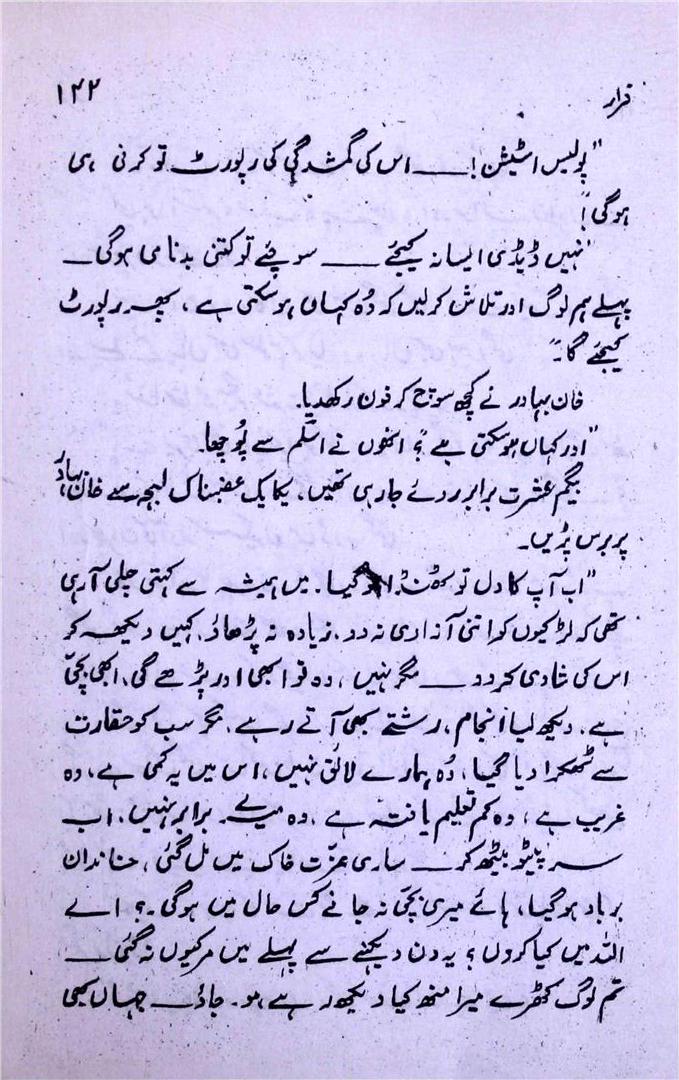 فرار ۱۴۲
"پولیس اسٹیشن! ــــ اس کی گمشدگی کی رپورٹ تو کرنی ہی
ہوگی!"
"نہیں ڈیڈی ایسا نہ کیجئے ــــ سوچئے تو کتنی بدنامی ہوگی ــ
پہلے ہم لوگ اور تلاش کرلیں کہ وُہ کہاں ہوسکتی ہے، پھر رپورٹ
کیجئے گا۔"
خان بہادر نے کچھ سوچ کر فون رکھدیا۔
"اور کہاں ہوسکتی ہے؟" انھوں نے اسلم سے پُوچھا۔
بیگم عشرت برابر روئے جارہی تھیں۔ یکایک غضبناک لہجہ سے خان بہادر
پر برس پڑیں۔
"اب آپ کا دل تو ٹھنڈا ہوگیا۔ میں ہمیشہ سے کہتی چلی آرہی
تھی کہ لڑکیوں کو اتنی آزادی نہ دو، زیادہ نہ پڑھاؤ، کہیں دیکھ کر
اس کی شادی کردو ــــ مگر نہیں، وہ تو ابھی اور پڑھے گی، ابھی بچّی
ہے۔ دیکھ لیا انجام، رشتے بھی آتے رہے، مگر سب کو حقارت
سے ٹھکرا دیا گیا، وُہ ہمارے لائق نہیں، اس میں یہ کمی ہے، وہ
غریب ہے، وہ کم تعلیم یافتہ ہے، وہ میرے برابر نہیں، اب
سر پیٹو بیٹھ کر ــــ ساری عزّت خاک میں مل گئی، خاندان
برباد ہوگیا، ہائے میری بچّی نہ جانے کس حال میں ہوگی۔؟ اے
اللہ میں کیا کروں؟ یہ دن دیکھنے سے پہلے میں مر کیوں نہ گئی ــــ
تم لوگ کھڑے میرا منھ کیا دیکھ رہے ہو۔ جاؤ ــ جہاں بھی